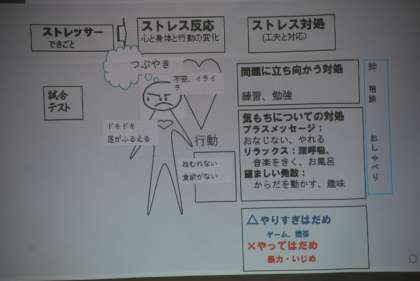 ストレッサー
できごと
ストレス反応
心と身体と行動の変化
ストレス対処
(工夫と対応)
つぶやき
不安、イライ
ラ
試合
テスト
ドキドキ
足がふるえる
行動
ねむれない
食欲がない
問題に立ち向かう対処
練習、勉強
気もちについての対処
プラスメッセージ：
おなじない、やれる
リラックス：深呼吸、
音楽をきく、お風呂
望ましい発散：
からだを動かす、趣味
相談
おしゃべり
△やりすぎはだめ
ゲーム、携帯
×やってはだめ
暴力・いじめ